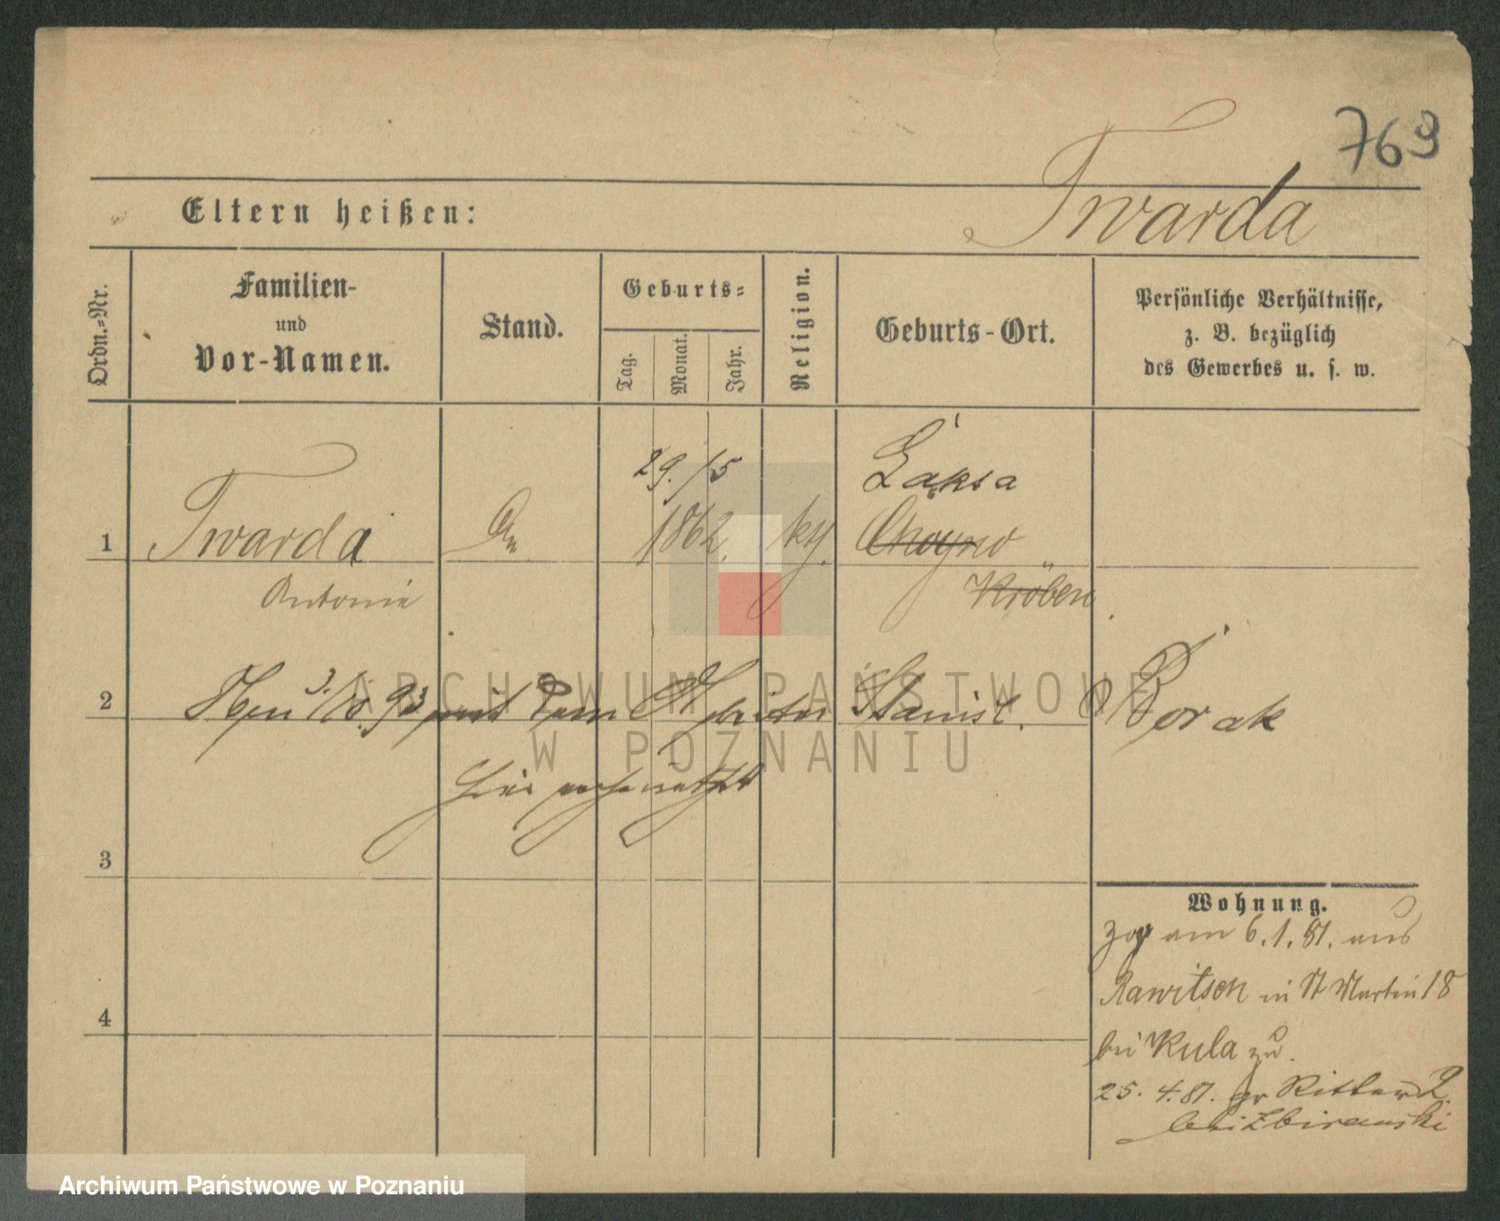 769
Eltern heißen:
Twarda
Ordn.-Nr.
Familien-
und
Vor-Namen.
Stand.
Geburts-
Tag.
Monat.
Jahr.
Religion.
Geburts-Ort.
Persönliche Verhältnisse,
z. B. bezüglich
des Gewerbes u. s. w.
29./5
Łąksa
1
Twarda
1862.
Choyno
Antonie
Kröben
2
mit dem Arbeiter Stanisl. Borak
hier verheirathet
3
4
Wohnung.
zog am 6.1.81. aus
Rawitsch in St Martin 18
bei Kula zu.
25. 4. 81. Ritterst 2.
bei Zbiranski
ARCHIWUM PAŃSTWOWE
W POZNANIU
Archiwum Państwowe w Poznaniu